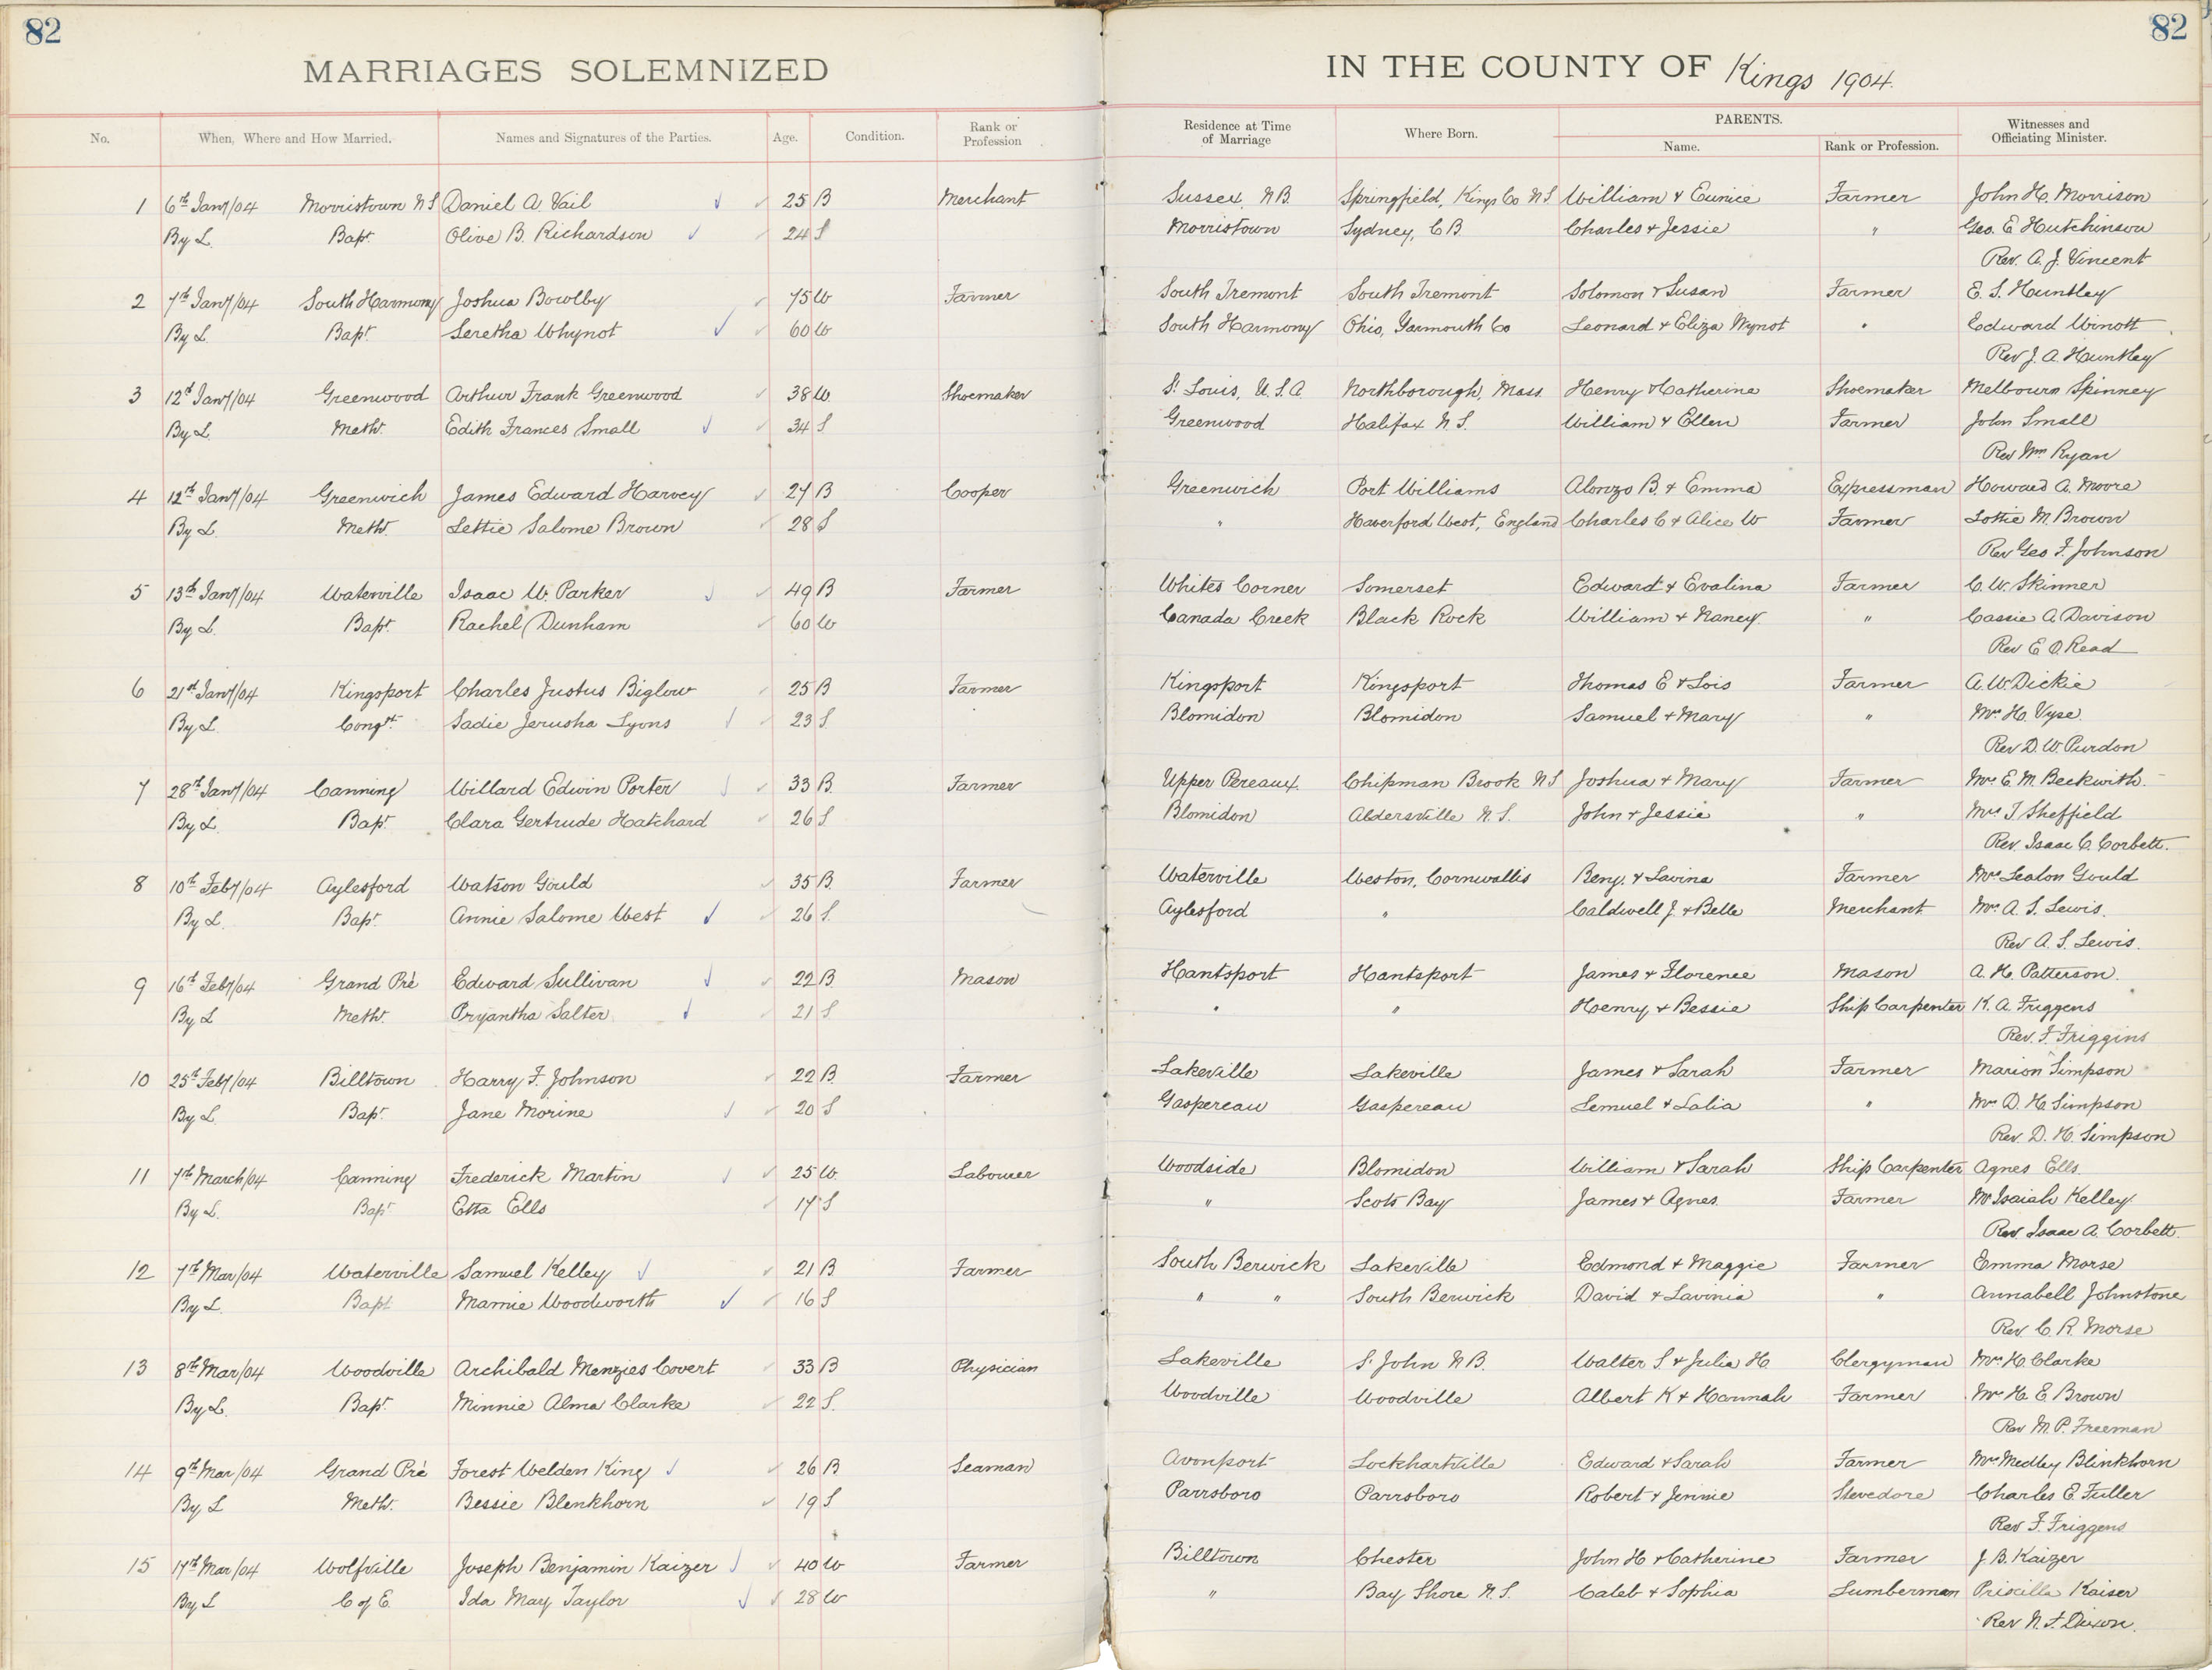 82
82
MARRIAGES SOLEMNIZED
IN THE COUNTY OF Kings 1904.
No. When, Where and How Married. Names and Signatures of the Parties. Age. Condition. Rank or Profession Residence at Time of Marriage Where Born. PARENTS. Name. Rank or Profession. Witnesses and Officiating Minister.
1 6th Jany/04 Morristown N S Daniel A. Vail 25 B Merchant Sussex, N.B. Springfield, Kings Co N S William & Eunice Farmer John H. Morrison
By L. Bapt. Olive B. Richardson 24 S Morristown Sydney, C B Charles & Jessie " Geo. E Hutchinson
Rev. A. J. Vincent
2 7th Jany/04 South Harmony Joshua Bowlby 75 W Farmer South Tremont South Tremont Solomon & Susan Farmer E. S. Huntley
By L. Bapt. Seretha Whynot 60 W South Harmony Ohio, Yarmouth Co Leonard & Eliza Wynot " Edward Winott
Rev J. A. Huntley
3 12th Jany/04 Greenwood Arthur Frank Greenwood 38 W. Shoemaker St Louis, U.S.A. Northborough, Mass. Henry & Catherine Shoemaker Melbourn Spinney
By L. Meth. Edith Frances Small 34 S Greenwood Halifax N S. William & Ellen Farmer John Small
Rev Wm Ryan
4 12th Jany/04 Greenwich James Edward Harvey 27 B Cooper Greenwich Port Williams Alonzo B. & Emma Expressman Howard A. Moore
By L. Meth. Lettie Salome Brown 28 S " Haverford West, England Charles C & Alice W Farmer Lottie M. Brown
Rev Geo F. Johnson
5 13th Jany/04 Waterville Isaac W. Parker 49 B Farmer Whites Corner Somerset Edward & Evalina Farmer C. W. Skinner
By L. Bapt. Rachel Dunham 60 W Canada Creek Black Rock William & Nancy " Cassie A. Davison
Rev E O. Read
6 21st Jany/04 Kingsport Charles Justus Biglow 25 B Farmer Kingsport Kingsport Thomas E & Lois Farmer A. W. Dickie
By L. Congt. Sadie Jerusha Lyons 23 S. Blomidon Blomidon Samuel & Mary " Mrs H. Vyse.
Rev D. W. Purdon
7 28th Jany/04 Canning Willard Edwin Porter 33 B. Farmer Upper Pereaux. Chipman Brook N S Joshua & Mary Farmer Mrs E. M. Beckwith.
By L. Bapt. Clara Gertrude Hatchard 26 S. Blomidon Aldersville N. S. John & Jessie " Mrs T Sheffield
Rev. Isaac C. Corbett.
8 10th Feby/04 Aylesford Watson Gould 35 B. Farmer Waterville Weston, Cornwallis Benj. & Lavina Farmer Mrs Leaton Gould
By L. Bapt. Annie Salome West 26 S. Aylesford " Caldwell J. & Belle Merchant Mrs A. S. Lewis.
Rev A. S. Lewis.
9 16th Feby/04 Grand Pré Edward Sullivan 22 B. Mason Hantsport Hantsport James & Florence Mason A. H. Patterson.
By L Meth. Pryantha Salter 21 S " " Henry & Bessie Ship Carpenter K. A. Friggens
Rev. F. Friggins
10 25th Feby/04 Billtown Harry F. Johnson 22 B. Farmer Lakeville Lakeville James & Sarah Farmer Marion Simpson
By L. Bapt. Jane Morine 20 S Gaspereau Gaspereau Lemuel & Lalia " Mrs D. H. Simpson
Rev. D. H. Simpson
11 7th March/04 Canning Frederick Martin 25 W. Labourer Woodside Blomidon William & Sarah Ship Carpenter Agnes Ells.
By L. Bapt Etta Ells 17 S " Scots Bay James & Agnes. Farmer Mr Isaiah Kelley
Rev Isaac A. Corbett.
12 7th Mar/04 Waterville Samuel Kelley 21 B Farmer South Berwick Lakeville Edmond & Maggie Farmer Emma Morse
By L. Bapt Mamie Woodworth 16 S " " South Berwick David & Lavinia " Annabell Johnstone
Rev C. R. Morse
13 8th Mar/04 Woodville Archibald Menzies Covert 33 B Physician Lakeville St John N B. Walter S. & Julia H. Clergyman Mrs H. Clarke
By L. Bapt. Minnie Alma Clarke 22 S. Woodville Woodville Albert K & Hannah Farmer Mrs H. E Brown
Rev M. P. Freeman
14 9th Mar/04 Grand Pré Forest Welden King 26 B Seaman Avonport Lockhartville Edward & Sarah Farmer Mrs Medley Blinkhorn
By L Meth. Bessie Blenkhorn 19 S Parrsboro Parrsboro Robert & Jennie Stevedore Charles E. Fuller
Rev F. Friggens
15 17th Mar/04 Wolfville Joseph Benjamin Kaizer 40 W Farmer Billtown Chester John H & Catherine Farmer J. B. Kaizer
By L C of E. Ida May Taylor 28 W " Bay Shore N. S. Caleb & Sophia Lumberman Priscilla Kaiser
Rev N. F. Dixon.